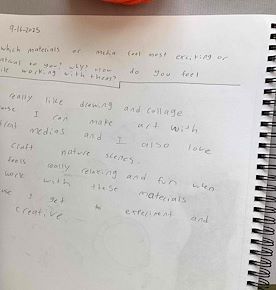 9-16-2025
which materials or media feel most exciting or
natural to you? why? How do you feel
working with them?
really like drawing and collage
I can make art with
medias and I also love
craft nature scenes.
feels really relaxing and fun when
work with these materials
I get to experiment and
creative